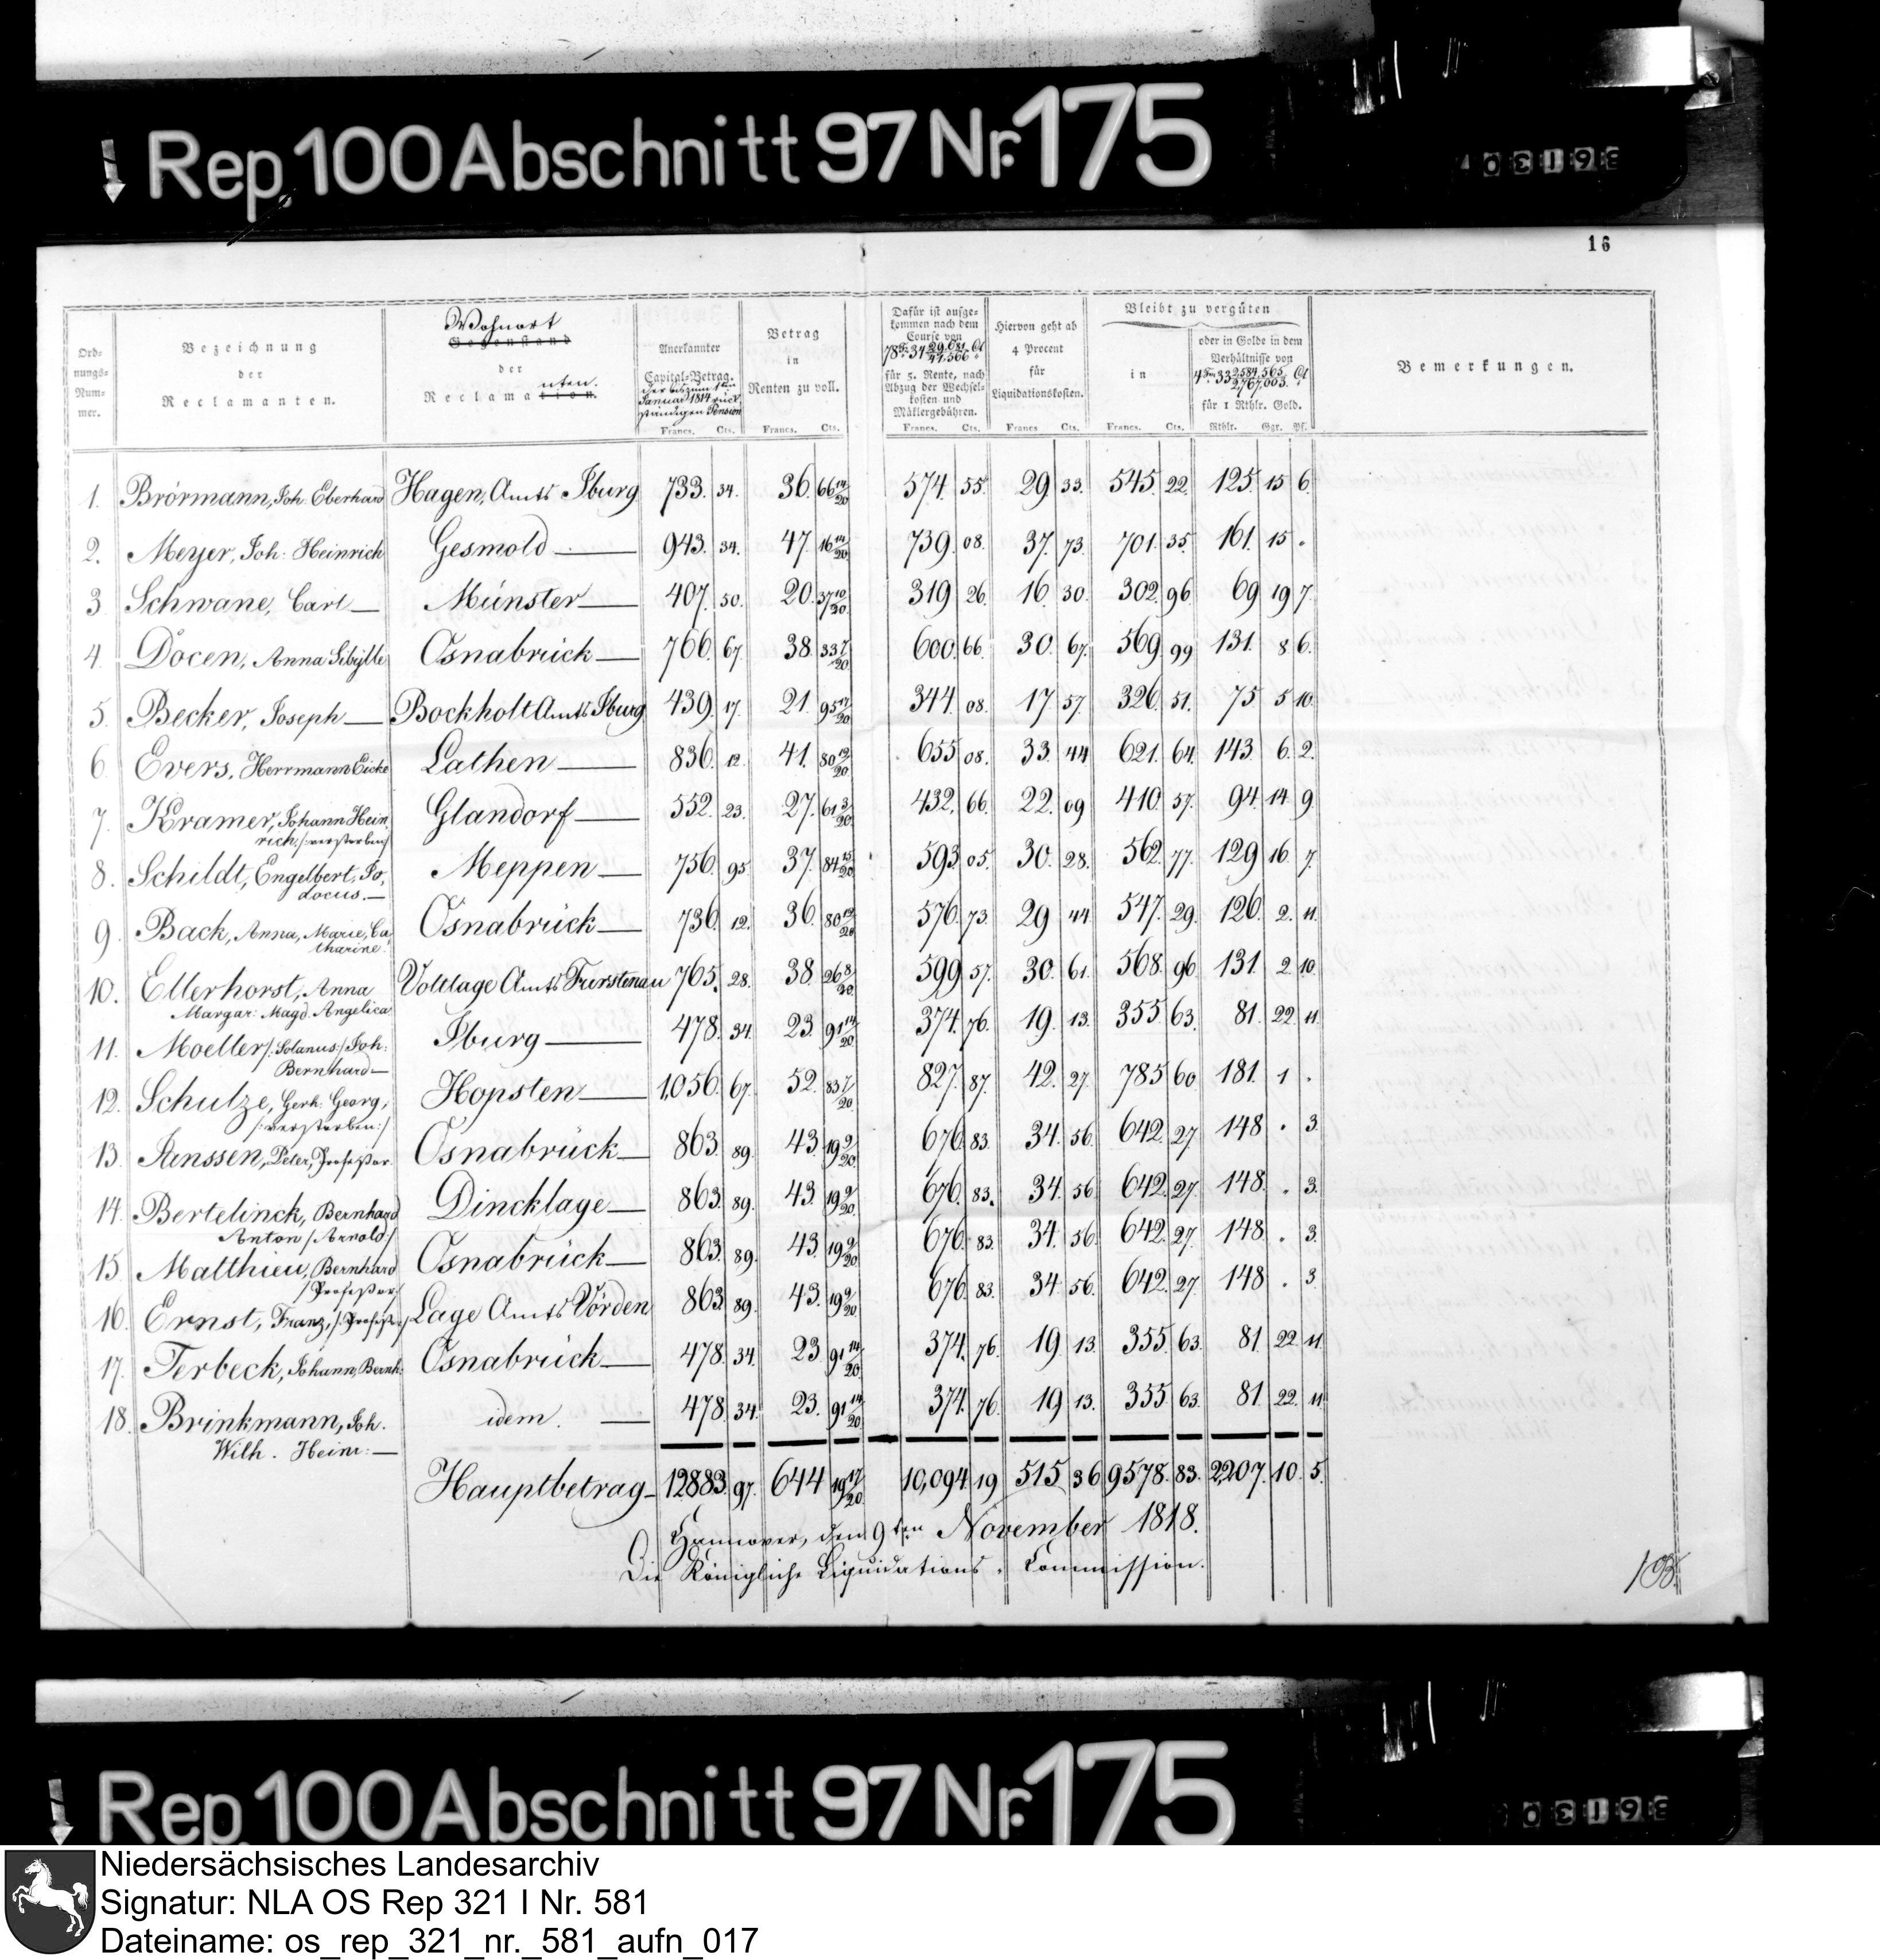 Rep. 100 Abschnitt 97 Nr. 175
16
Ord-
nungs-
Num-
mer.
Bezeichnung
der
Reclamanten.
Wohnort
Gegenstand
der
Reclamanten.
Anerkannter
Capital-Betrag.
der bis zum 1ten
Januar 1814 rück
ständigen Pension
Francs. Cts.
Betrag
in
Renten zu voll.
Francs. Cts.
Dafür ist aufge-
kommen nach dem
Course von
78 Fr. 34 29,081/41,566 Ct
für 5. Rente, nach
Abzug der Wechsel-
kosten und
Mäklergebühren.
Francs. Cts.
Hiervon geht ab
4 Procent
für
Liquidationskosten.
Francs Cts.
Bleibt zu vergüten
in
Francs. Cts.
oder in Golde in dem
Verhältnisse von
4 Fr. 33 2584,565/2,767,003. Ct
für 1 Rthlr. Gold.
Rthlr. Ggr. Pf.
Bemerkungen.
1. Brörmann, Joh. Eberhard Hagen, Amts Iburg 733. 34. 36. 66 14/20 574. 55. 29 33. 545. 22. 125. 15 6.
2. Meyer, Joh: Heinrich Gesmold — 943. 34. 47. 16 14/20 739. 08. 37. 73. 701. 35. 161. 15 .
3 Schwane, Carl — Münster — 407. 50. 20. 37 10/20 319 26. 16. 30. 302. 96. 69 19 7.
4. Docen, Anna Sibylle Osnabrück — 766. 67. 38. 33 7/20 600. 66. 30. 67. 569. 99 131. 8 6.
5. Becker, Joseph — Bockholt Amts Iburg 439. 17. 21. 95 17/20 344. 08. 17. 57. 326. 51. 75. 5 10.
6. Evers, Herrmann Eicke Lathen — 836. 12. 41. 80 12/20 655 08. 33. 44 621. 64. 143. 6. 2.
7. Kramer, Johann Hein, Glandorf — 552. 23. 27. 61 3/20 432. 66. 22. 09 410. 57. 94. 14. 9.
rich. /:verstorben/
8. Schildt, Engelbert, Jo, Meppen — 756. 95. 37. 84 15/20 593. 05. 30. 28. 562. 77. 129 16. 7.
docus. —
9. Back, Anna, Marie, Ca Osnabrück — 736. 12. 36. 80 12/20 576. 73. 29 44. 547. 29. 126. 2. 11.
tharine.
10. Ellerhorst, Anna Voltlage Amts Furstenau 765. 28. 38. 26 8/20 599 57. 30. 61. 568. 96 131. 2 10.
Margar: Magd. Angelica
11. Moeller /:Solanus:/ Joh: Iburg — 478. 34. 23. 91 14/20 374. 76. 19. 13. 355. 63. 81. 22 11.
Bernhard —
12. Schulze, Gerh: Georg, Hopsten — 1,056. 67. 52. 83 7/20 827. 87. 42. 27. 785. 60. 181. 1 .
/:verstorben:/
13. Janssen, Peter, Professor. Osnabrück — 863. 89. 43. 19 9/20 676. 83. 34. 56. 642. 27 148 . 3.
14. Bertelinck, Bernhard Dincklage — 863. 89. 43. 19 9/20 676. 83. 34. 56. 642. 27 148. . 3.
Anton /Arnold:/
15 Matthieu, Bernhard Osnabrück — 863. 89. 43. 19 9/20 676. 83. 34. 56. 642. 27. 148. . 3.
/Professor/
16. Ernst, Franz, /:Professor/ Lage Amts Vörden 863 89. 43. 19 9/20 676. 83. 34. 56. 642. 27. 148 . 3
17. Terbeck, Johann, Bernh: Osnabrück — 478. 34. 23. 91 14/20 374. 76. 19. 13. 355. 63. 81. 22 11.
18. Brinkmann, Joh. idem. — 478. 34. 23. 91 14/20 374. 76. 19 13. 355. 63. 81. 22. 11.
Wilh. Heinr: —
Hauptbetrag — 12883. 97. 644 19 17/20 10,094. 19 515. 36 9578. 83. 2,207. 10. 5.
Hannover, den 9ten November 1818.
Die Königliche Liquidations-Commission.
103.
Rep. 100 Abschnitt 97 Nr. 175
Niedersächsisches Landesarchiv
Signatur: NLA OS Rep 321 I Nr. 581
Dateiname: os_rep_321_nr._581_aufn_017